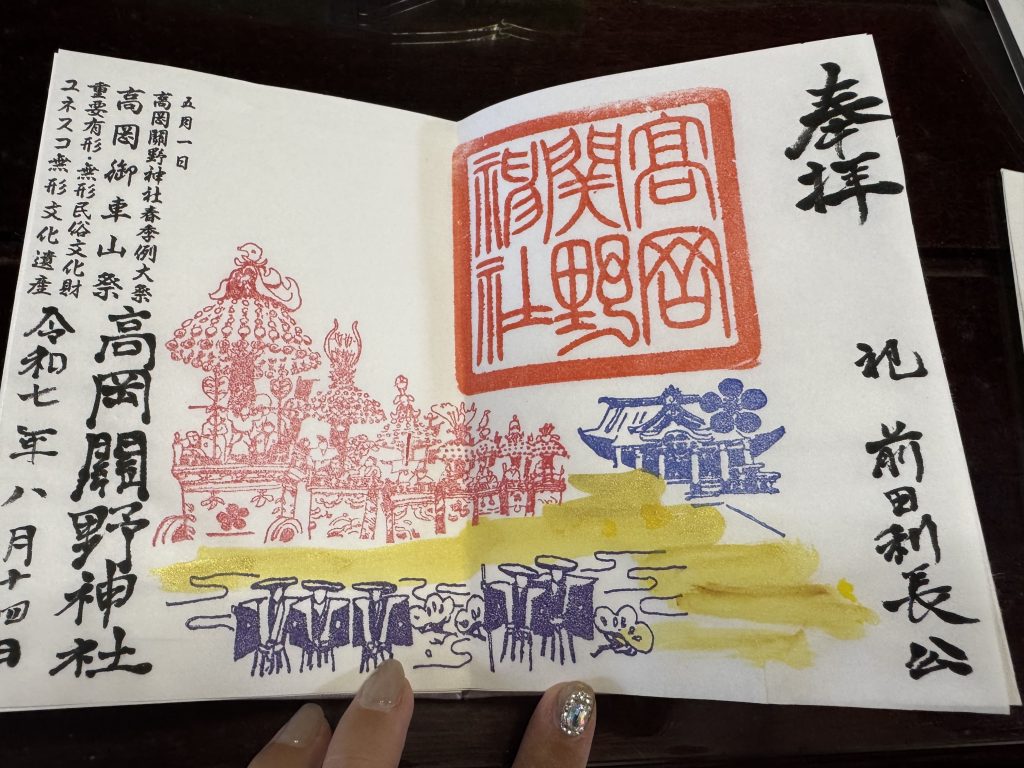 奉拝
祀 前田利長公
高岡
関野
神社
五月一日
高岡關野神社春季例大祭
高岡御車山祭
重要有形・無形民俗文化財
ユネスコ無形文化遺産
高岡關野神社
令和七年八月十四日